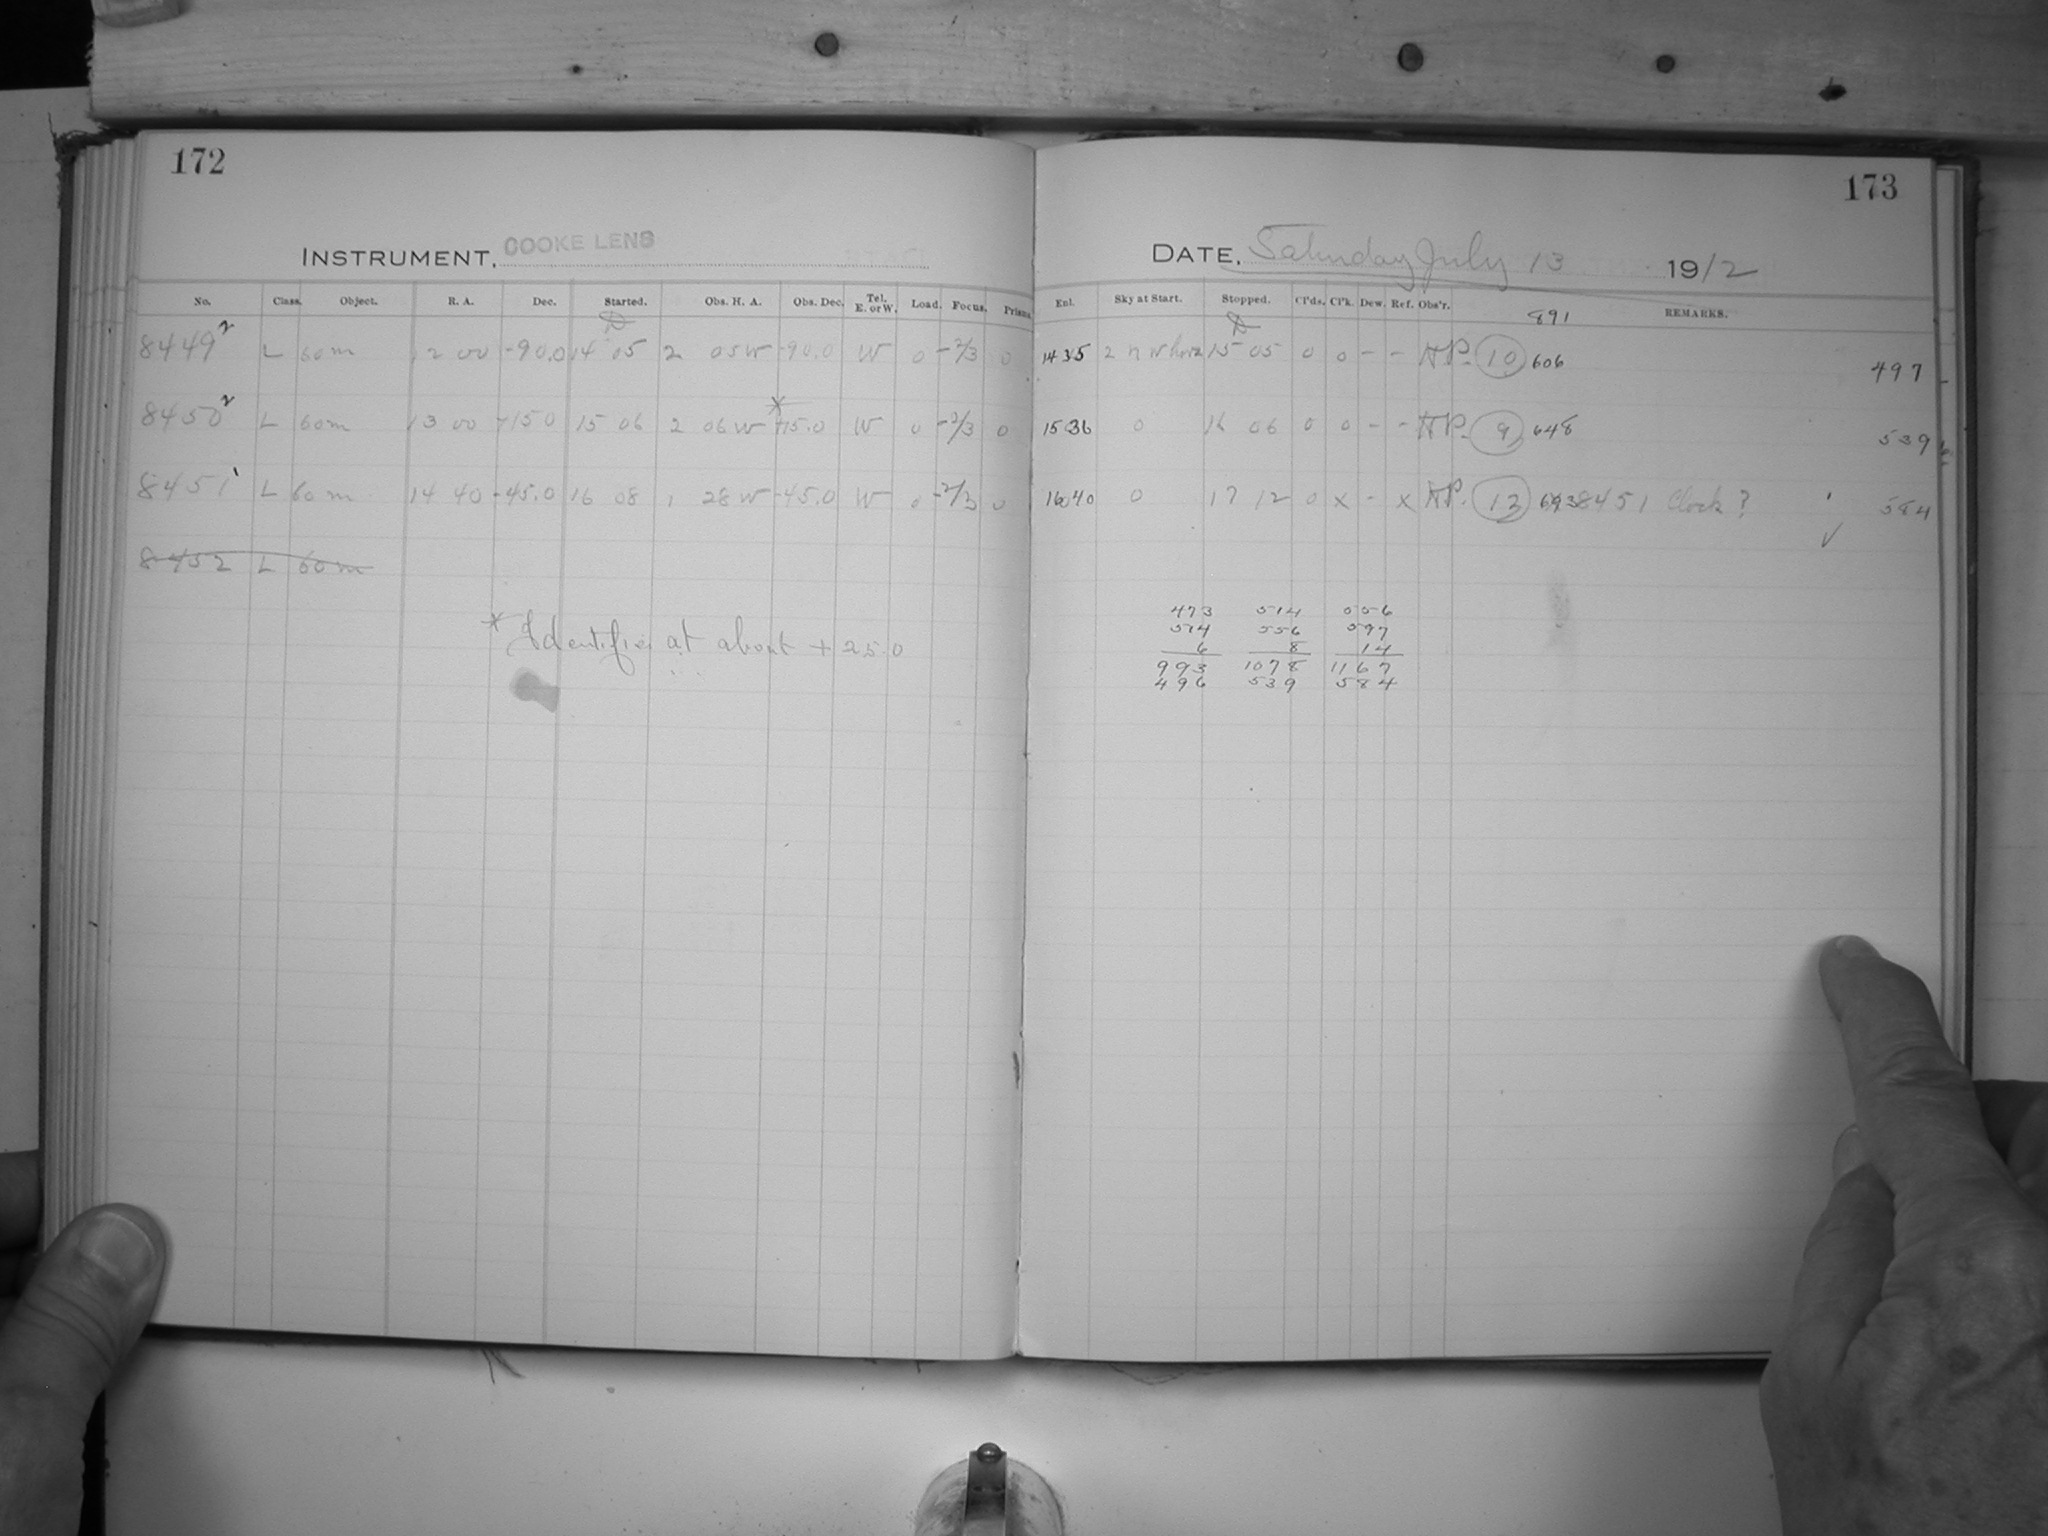 172
INSTRUMENT, COOKE LENS
No. Class. Object. R. A. Dec. Started. Obs. H. A. Obs. Dec. Tel. E. or W. Load. Focus. Prisms.
8449 2 L 60m 12 00 -90.0 14 05 2 05 W -90.0 W 0 -2/3 0
8450 2 L 60m 13 00 +15 0 15 06 2 06 W * +15.0 W 0 -2/3 0
8451 1 L 60m 14 40 -45.0 16 08 1 28 W -45.0 W 0 -2/3 0
8452 L 60m
* Identifies at about +25.0
173
DATE, Saturday July 13 1912
Enl. Sky at Start. Stopped. Cl'ds. Cl'k. Dew. Ref. Obs'r. REMARKS.
891
1435 2 n w horz 15 05 0 0 - - 10 606 497
1536 0 16 06 0 0 - - 9 648 539
1640 0 17 12 0 x - x 13 693 8451 Clock? 584
473 514 556
514 556 597
6 8 14
993 1078 1167
496 539 584